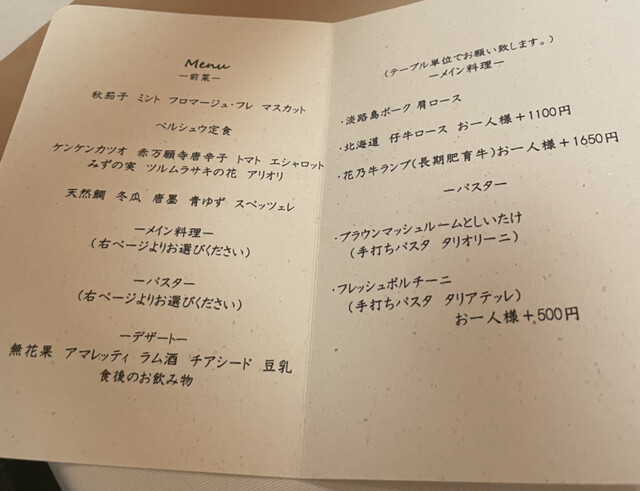 Menu
ー前菜ー
秋茄子 ミント フロマージュ・フレ マスカット
ペルシュウ定食
ケンケンカツオ 赤万願寺唐辛子 トマト エシャロット
みずの実 ツルムラサキの花 アリオリ
天然鯛 冬瓜 唐墨 青ゆず スペッツェレ
ーメイン料理ー
(右ページよりお選びください)
ーパスター
(右ページよりお選びください)
ーデザートー
無花果 アマレッティ ラム酒 チアシード 豆乳
食後のお飲み物
(テーブル単位でお願い致します。)
ーメイン料理ー
・淡路島ポーク 肩ロース
・北海道 仔牛ロース お一人様+1100円
・花乃牛ランプ(長期肥育牛)お一人様+1650円
ーパスター
・ブラウンマッシュルームとしいたけ
(手打ちパスタ タリオリーニ)
・フレッシュポルチーニ
(手打ちパスタ タリアテッレ)
お一人様+500円